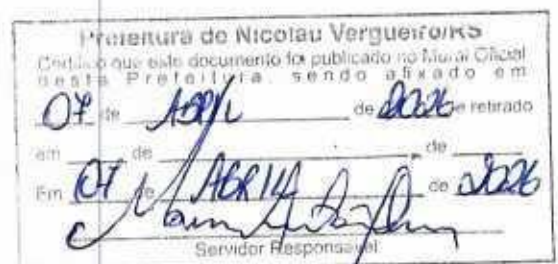 Prefeitura de Nicolau Vergueiro/RS
Certifico que este documento foi publicado no Mural Oficial
desta Prefeitura, sendo afixado em
07 de ABRIL de 2026 e retirado
em de de
Em 07 de ABRIL de 2026
Servidor Responsável